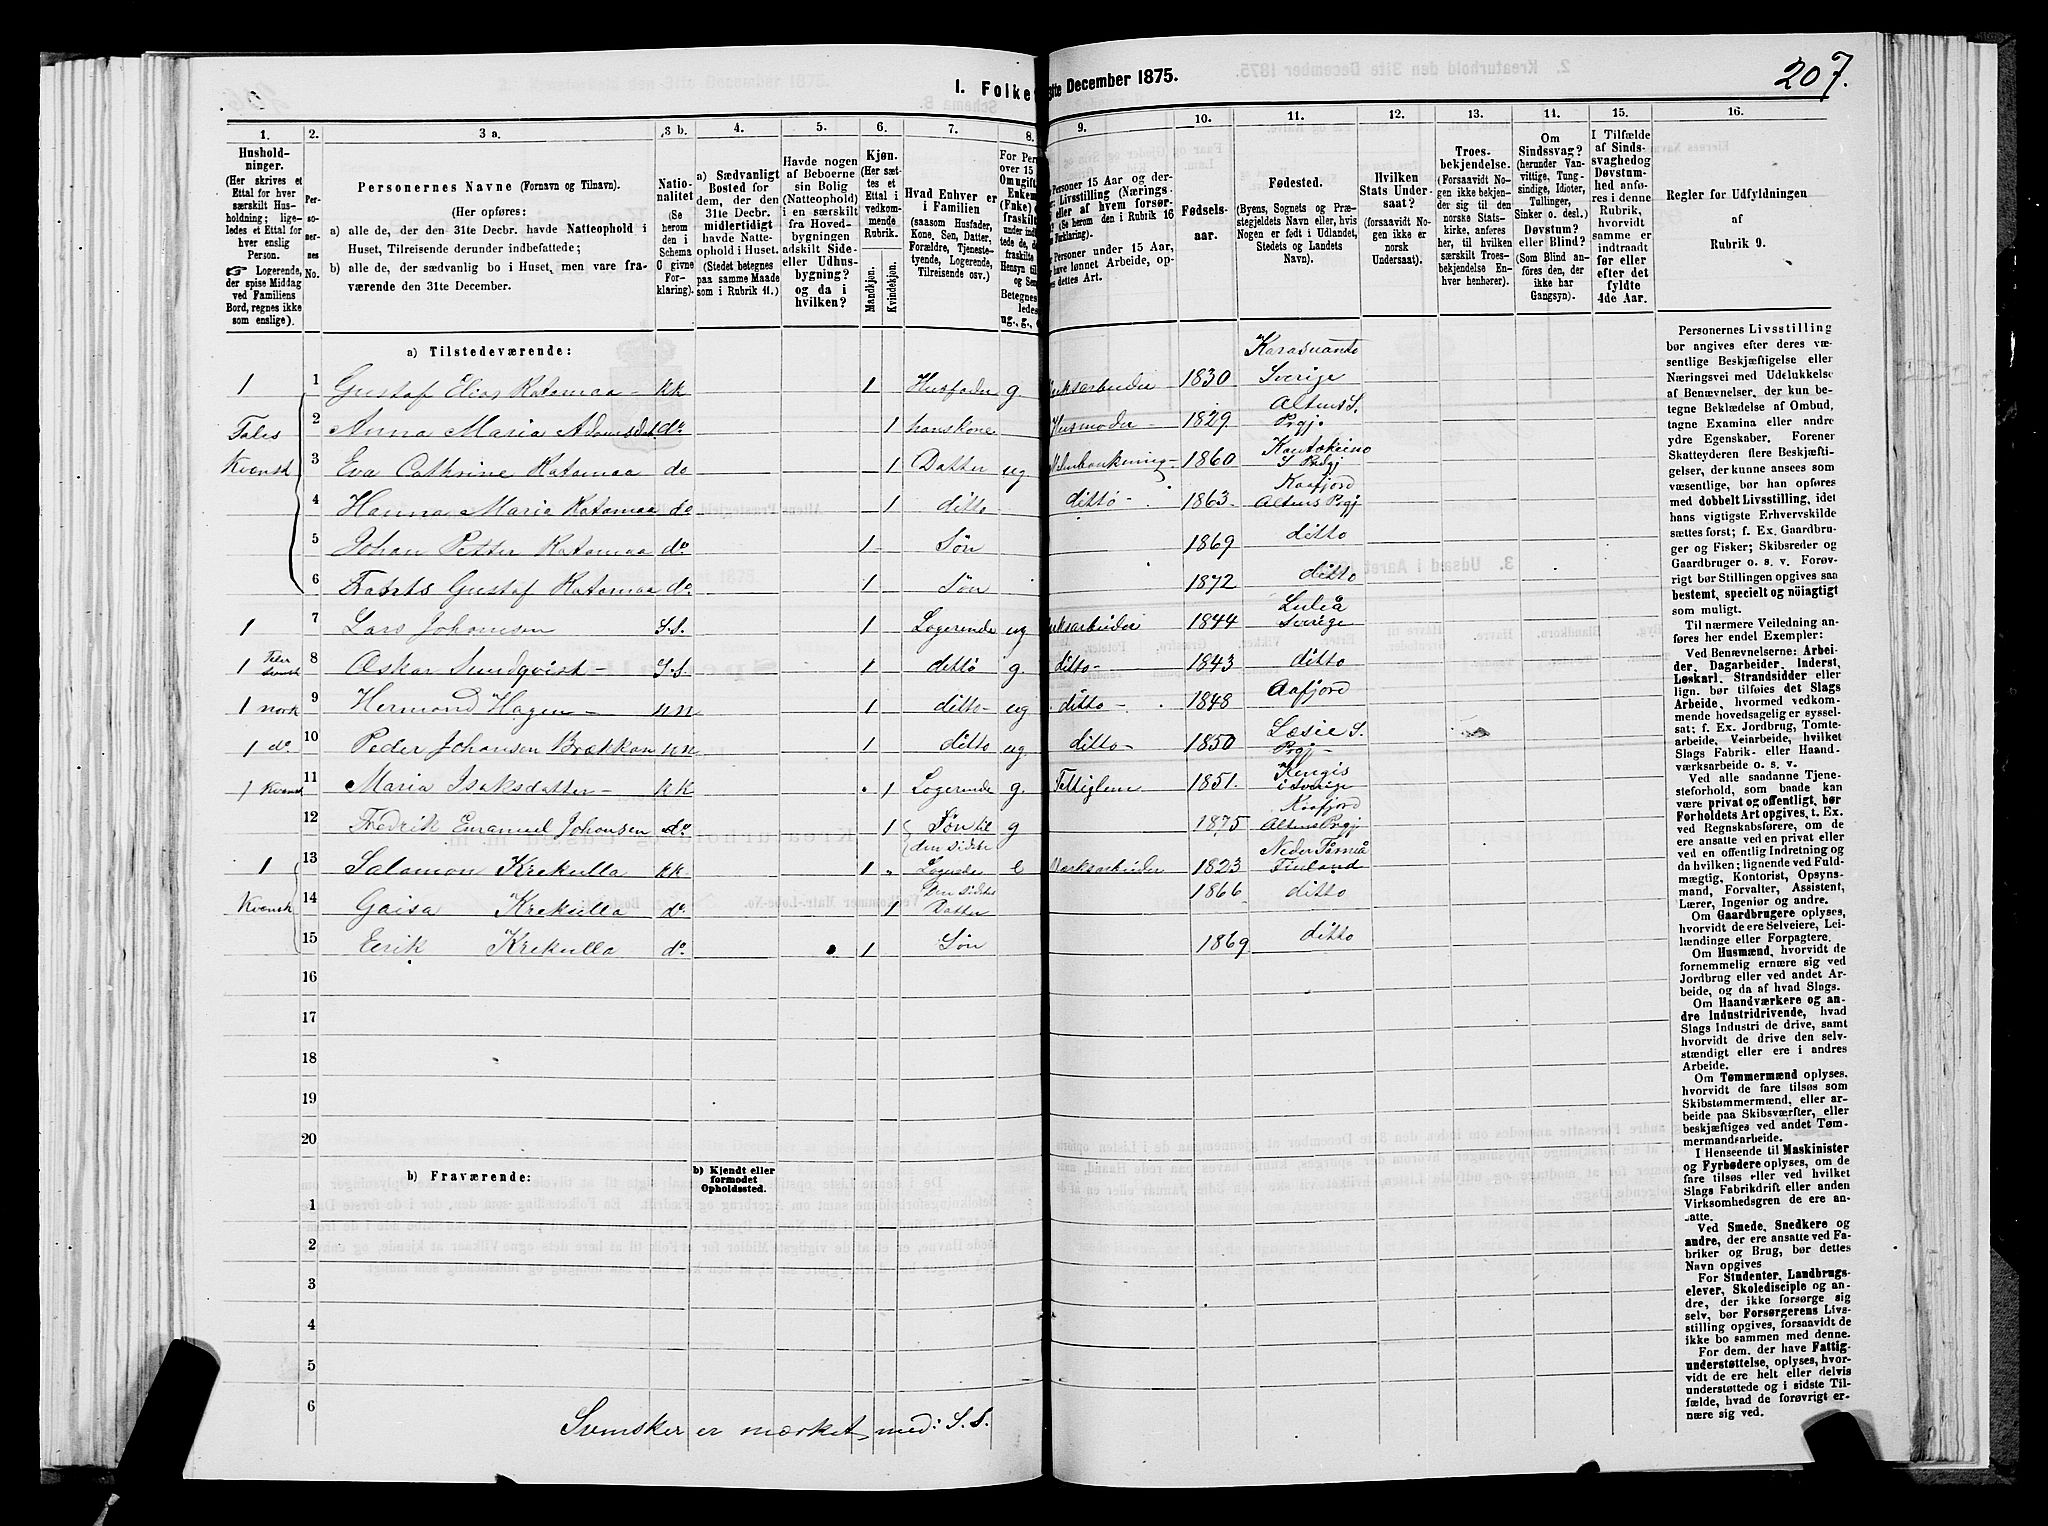 207.
I. Folke
31te December 1875.
1. 2. 3 a. 3 b. 4. 5. 6. 7. 8. 9. 10. 11. 12. 13. 14. 15. 16.
Husholdninger.
(Her skrives et
Ettal for hver
særskilt Husholdning;
ligeledes et Ettal for
hver enslig
Person.
☞ Logerende,
der spise Middag
ved Familiens
Bord, regnes ikke
som enslige).
Personernes No.
Personernes Navne (Fornavn og Tilnavn).
(Her opføres:
a) alle de, der den 31te Decbr. havde Natteophold i
Huset, Tilreisende derunder indbefattede;
b) alle de, der sædvanlig bo i Huset, men vare fraværende
den 31te December.
Nationalitet
(Se
herom
den i
Schema
G givne
Forklaring).
a) Sædvanligt
Bosted for
dem, der den
31te Decbr.
midlertidigt
havde Natteophold
i Huset.
(Stedet betegnes
paa samme Maade
som i Rubrik 11.)
Havde nogen
af Beboerne
sin Bolig
(Natteophold)
i en særskilt
fra Hovedbygningen
adskilt Sideeller
Udhusbygning?
og da i
hvilken?
Kjøn.
(Her sættes
et Ettal i
vedkommende
Rubrik.
Mandkjøn.
Kvindekjøn.
Hvad Enhver er
i Familien
(saasom Husfader,
Kone, Søn, Datter,
Forældre, Tjenestetyende,
Logerende,
Tilreisende osv.)
Fødselsaar.
Fødested.
(Byens, Sognets og Præstegjeldets
Navn eller, hvis
Nogen er født i Udlandet,
Stedets og Landets
Navn).
Hvilken
Stats Undersaat?
(forsaavidt Nogen
ikke er
norsk
Undersaat).
Troesbekjendelse.
(Forsaavidt Nogen
ikke bekjender
sig til den
norske Statskirke,
anføres
her, til hvilken
særskilt Troesbekjendelse
Enhver
henhører).
Om
Sindssvag?
(herunder Vanvittige,
Tungsindige,
Idioter,
Tullinger,
Sinker o. desl.)
Døvstum?
eller Blind?
(Som Blind anføres
den, der
ikke har
Gangsyn).
I Tilfælde
af Sindssvaghed og
Døvstumhed
anføres
i denne
Rubrik,
hvorvidt
samme er
indtraadt
før eller
efter det
fyldte
4de Aar.
Regler for Udfyldningen
af
Rubrik 9.
a) Tilstedeværende:
Karasuando
1 1 Gustaf Elias Ratamaa KK 1 Husfader g 1830 Sverige
Altens S.
Tales 2 Anna Maria do 1 hans kone Husmoder 1829 Prgj.
Kvensk 3 Eva Cathrine Ratamaa do 1 Datter ug 1860 Kautokeino
S Prgj
Kaafjord
4 Hanna Maria Ratamaa do 1 ditto ditto 1863. Altens Prgj
5 Johan Petter Ratamaa do 1 Søn 1869 ditto
6 Gustaf Ratamaa do 1 Søn 1872 ditto
Luleå
1 7 Lars Johansen S.S. 1 Logerende ug 1844 Sverige
1 8 Oskar Sundqvist S.S 1 ditto g ditto 1843 ditto
1 norsk 9 Hermand Hagen NN 1 ditto ug ditto 1848 Aafjord
1 do 10 Peder Johansen Brækkan NN 1 ditto ug ditto 1850 Læsie S.
Prgj
1 Kvensk 11 Maria Isaksdatter KK 1 Logerende g. 1851. Kengis
i Sverige
Kaafjord
12 Fredrik Emanuel Johansen do 1 Søn til g 1875 Altens Prgj
den sidste
1 13 Salamon Krekulla KK 1 e Værksarbeider 1823 Neder Torneå
Finland
Kvensk 14 Gaisa Krekulla do 1 Den sidstes
Datter 1866 ditto
15 Eerik Krekulla do 1 Søn 1869 ditto
16
17
18
19
20
b) Fraværende:
b) Kjendt eller
formodet
Opholdssted.
1
2
3
4
5
6
Svensker er mærket med: S.S.
Personernes Livsstilling
bør angives efter deres væsentlige
Beskjæftigelse eller
Næringsvei med Udelukkelse
af Benævnelser, der kun betegne
Beklædelse af Ombud,
tagne Examina eller andre
ydre Egenskaber. Forener
Skatteyderen flere Beskjæftigelser,
der kunne ansees som
væsentlige, bør han opføres
med dobbelt Livsstilling, idet
hans vigtigste Erhvervskilde
sættes først; f. Ex. Gaardbruger
og Fisker; Skibsreder og
Gaardbruger o. s. v. Forøvrigt
bør Stillingen opgives saa
bestemt, specielt og nöiagtigt
som muligt.
Til nærmere Veiledning anføres
her endel Exempler:
Ved Benævnelserne: Arbeider,
Dagarbeider, Inderst,
Løskarl, Strandsidder eller
lign. bør tilføies det Slags
Arbeide, hvormed vedkommende
hovedsagelig er sysselsat;
f. Ex. Jordbrug, Tomtearbeide,
Veiarbeide, hvilket
Slags Fabrik- eller Haandværksarbeide
o. s. v.
Ved alle saadanne Tjenesteforhold,
som baade kan
være privat og offentligt, bør
Forholdets Art opgives, t. Ex.
ved Regnskabsførere, om de
ere ansatte ved en privat eller
ved en offentlig Indretning og
da hvilken; lignende ved Fuldmægtig,
Kontorist, Opsynsmand,
Forvalter, Assistent,
Lærer, Ingeniør og andre.
Om Gaardbrugere oplyses,
hvorvidt de ere Selveiere, Leilændinge
eller Forpagtere.
Om Husmænd, hvorvidt de
fornemmelig ernære sig ved
Jordbrug eller ved andet Arbeide,
og da af hvad Slags.
Om Haandværkere og andre
Industridrivende, hvad
Slags Industri de drive, samt
hvorvidt de drive den selvstændigt
eller ere i andres
Arbeide.
Om Tømmermænd oplyses,
hvorvidt de fare tilsøs som
Skibstømmermænd, eller arbeide
paa Skibsværfter, eller
beskjæftiges ved andet Tømmermandsarbeide.
I Henseende til Maskinister
og Fyrbødere oplyses, om de
fare tilsøs eller ved hvilket
Slags Fabrikdrift eller anden
Virksomhedsgren de ere ansatte.
Ved Smede, Snedkere og
andre, der ere ansatte ved Fabriker
og Brug, bør dettes
Navn opgives
For Studenter, Landbrugselever,
Skoledisciple og andre,
der ikke forsørge sig
selv, bør Forsørgerens Livsstilling
opgives, forsaavidt de
ikke bo sammen med denne.
For dem, der have Fattigunderstøttelse,
oplyses, hvorvidt
de ere helt eller delvis
understøttede og i sidste Tilfælde,
hvad de forøvrigt ernære
sig ved.